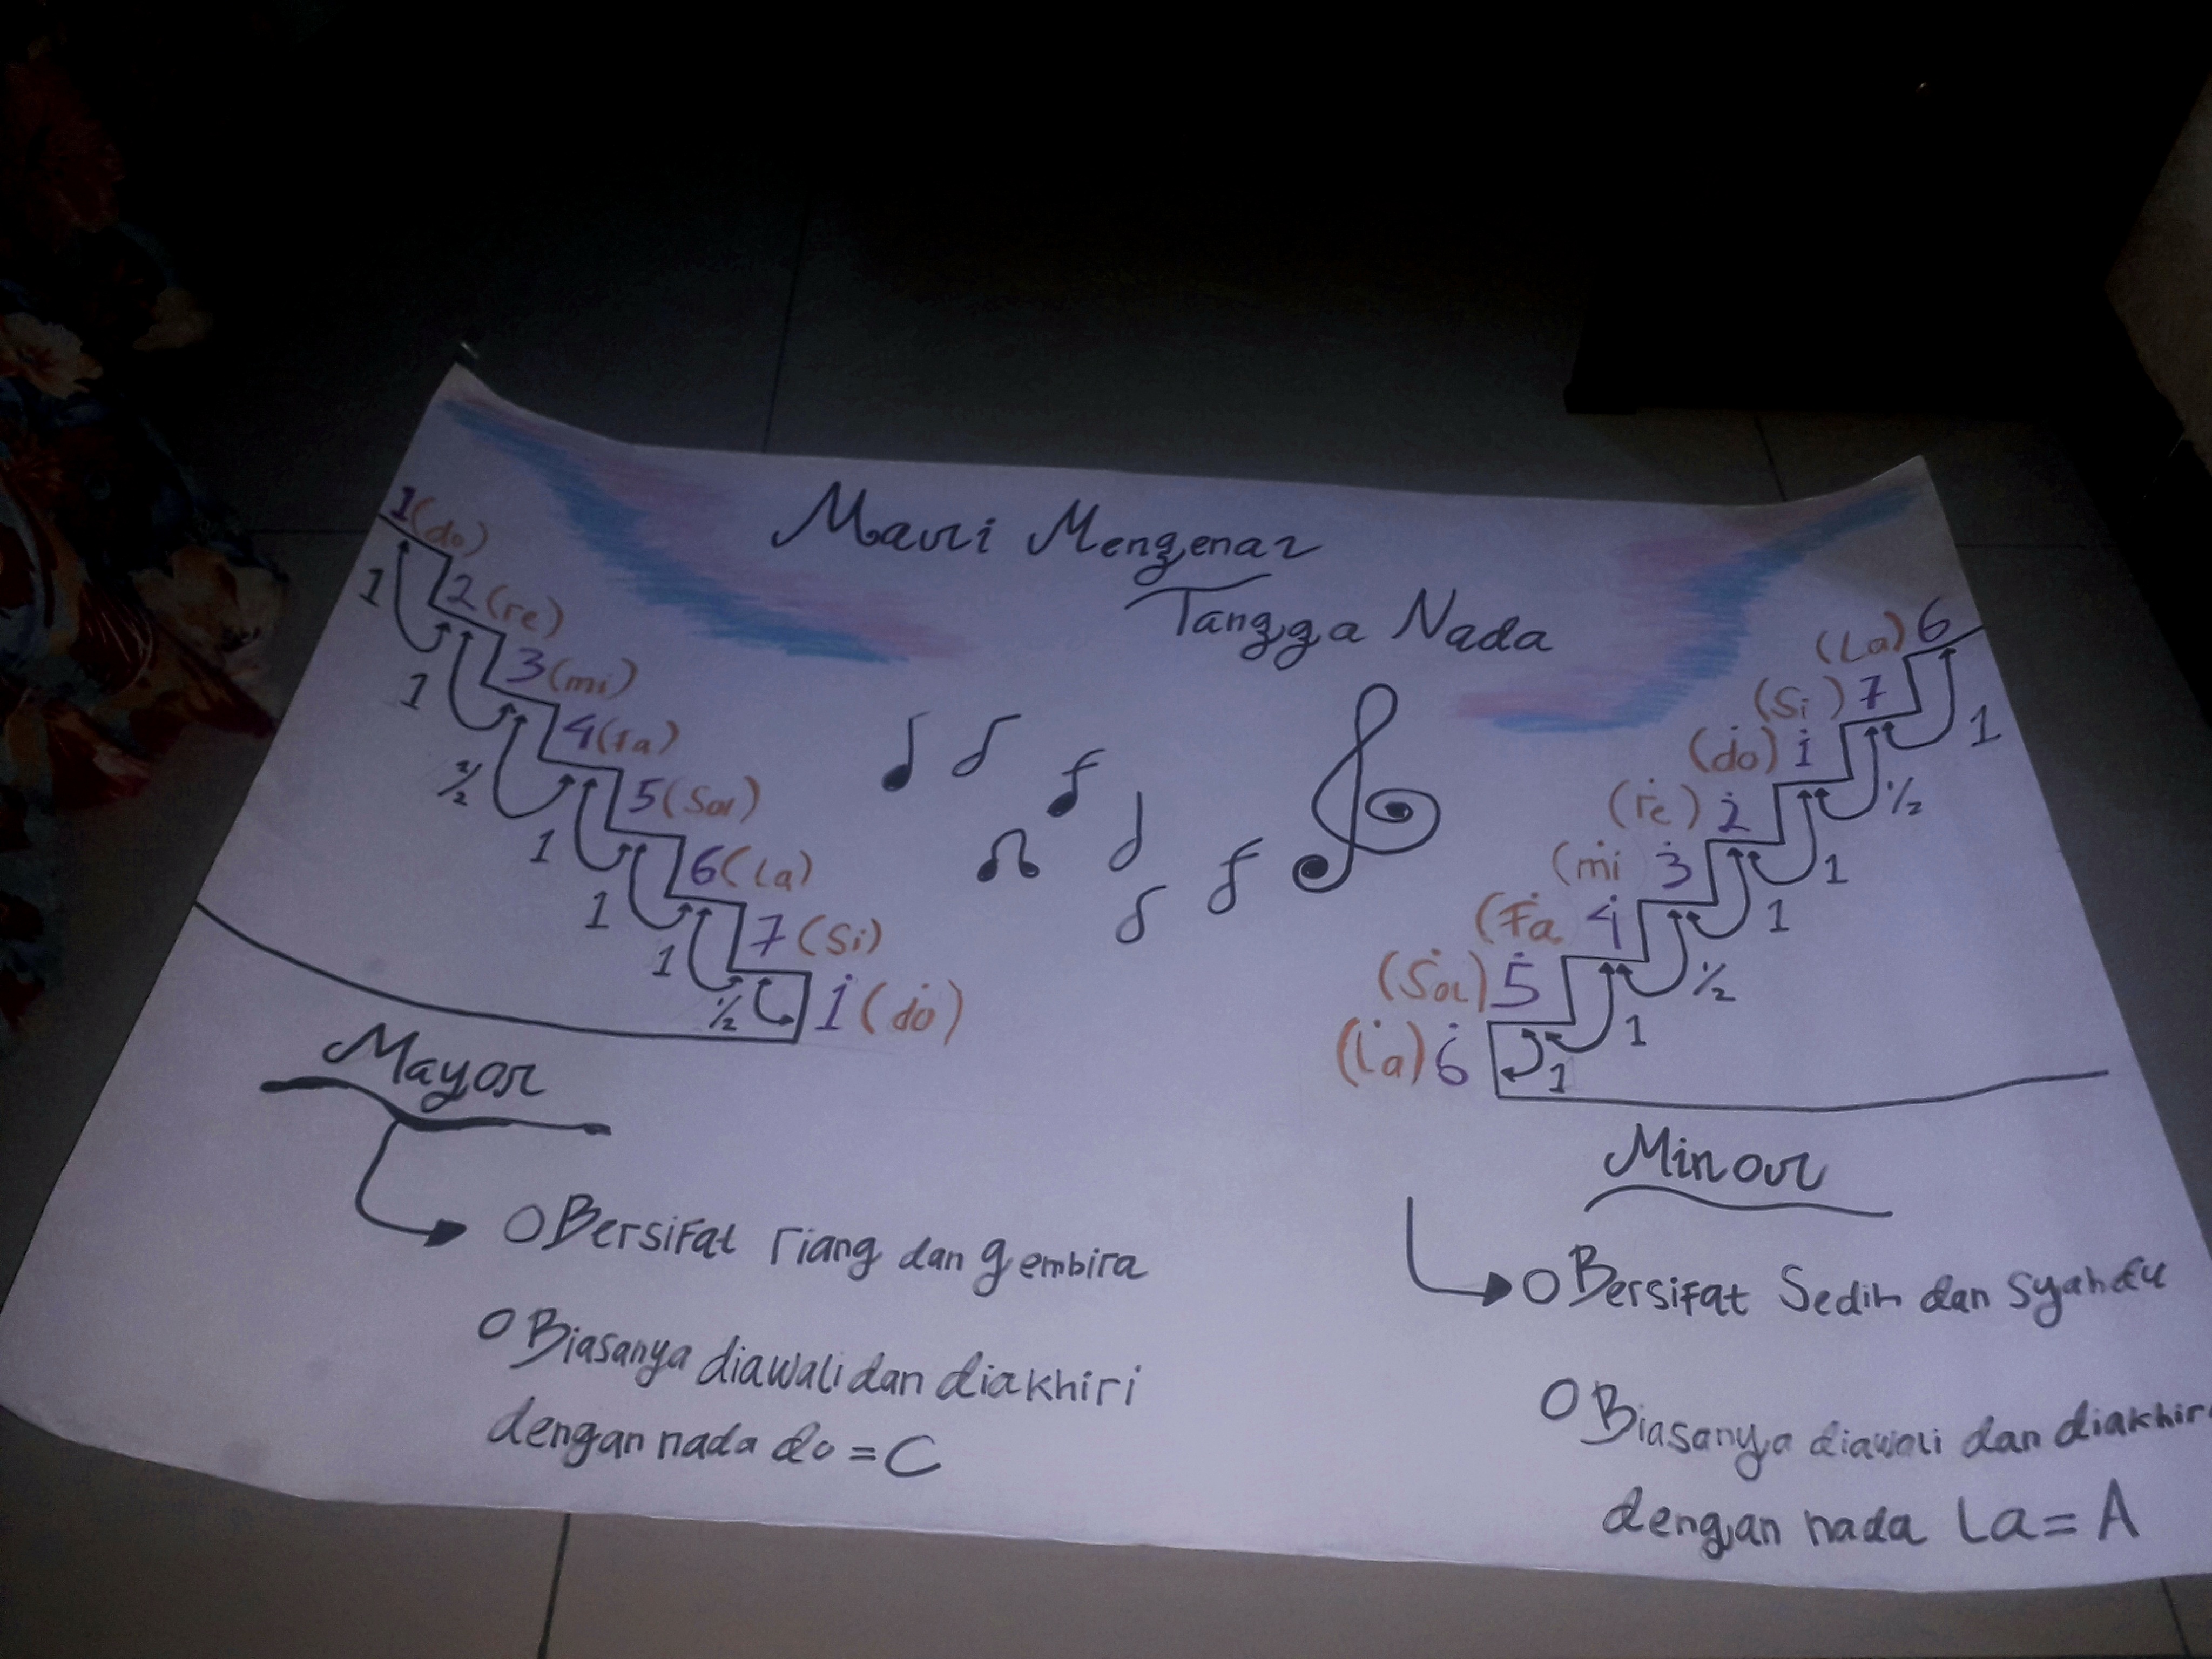 Mari Mengenal
Tangga Nada
1 (do)
1
2 (re)
1
3 (mi)
1/2
4 (fa)
1
5 (Sol)
1
6 (la)
1
7 (si)
1/2
1̇ (dȯ)
Mayor
O Bersifat riang dan gembira
O Biasanya diawali dan diakhiri
dengan nada do = C
(La) 6
1
(Si) 7
1/2
(dȯ) 1̇
1
(rė) 2̇
1
(ṁi 3̇
1/2
(Fȧ 4̇
1
(Sȯl) 5̇
1
(L̇a) 6̇
Minor
O Bersifat Sedih dan syahdu
O Biasanya diawali dan diakhiri
dengan nada La = A